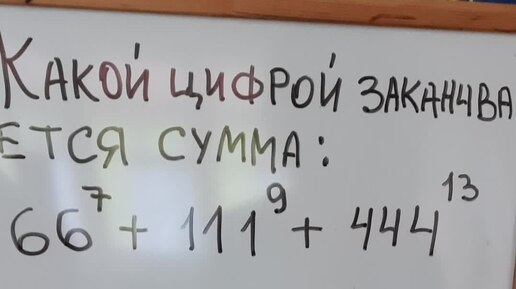 КАКОЙ ЦИФРОЙ ЗАКАНЧИВА
ЕТСЯ СУММА:
66⁷ + 111⁹ + 444¹³